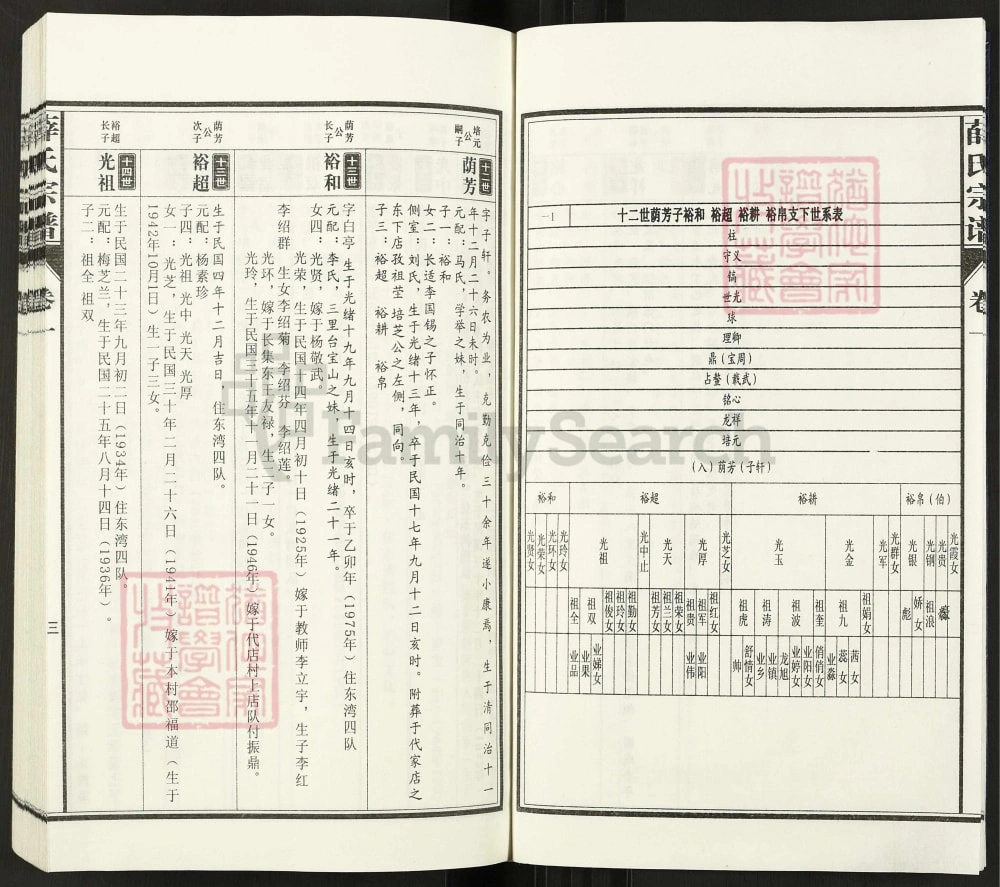 薛氏宗谱
卷一
一1
十二世荫芳子裕和 裕超 裕耕 裕帛支下世系表
柱
守义
镐
世光
琭
理卿
鼎（宝周）
占鳌（戡武）
铭心
龙祥
培元
（入）荫芳（子轩）
裕和 裕超 裕耕 裕帛（伯）
光贤女 光荣女 光环女 光玲女 光祖 光中止 光天 光厚 光芝女 光玉 光金 光军 光群女 光银 光钢 光贵 光霞女
祖全 祖双 祖俊女 祖玲女 祖勤女 祖芳女 祖兰女 祖荣女 祖贵 祖军 祖红女 祖虎 祖涛 祖波 祖奎 祖九 祖娟女 彪 娇女 祖浪
业品 业果 业娣女 业伟 业阳 帅 舒情女 业乡 业镇 龙旭 业婷女 业阳女 俏俏女 业淼 蕊女 茜女
薛氏宗谱
卷一
三
培元公嗣子
十二世
荫芳
字子轩。务农为业，克勤克俭三十余年遂小康焉，生于清同治十一
年十二月二十六日未时。
元配：马氏，学举之妹，生于同治十年。
子一：裕和
女二：长适李国锡之子怀正。
侧室：刘氏，生于光绪十三年，卒于民国十七年九月十二日亥时。附葬于代家店之
东下店孜祖茔 培芝公之左侧，同向。
子三：裕超 裕耕 裕帛
荫芳公长子
十三世
裕和
字白亭，生于光绪十九年九月十四日亥时，卒于乙卯年（1975年）住东湾四队
元配：李氏，三里台宝山之妹，生于光绪二十一年。
女四：光贤，嫁于杨敬武。
光荣，生于民国十四年四月初十日（1925年）嫁于教师李立宇，生子李红
李绍群 生女李绍菊 李绍芬 李绍莲。
光环，嫁于长集东王友禄，生二子一女。
光玲，生于民国三十五年十一月二十一日（1946年）嫁于代店村上店队付振鼎。
荫芳公次子
十三世
裕超
生于民国四年十二月吉日，住东湾四队。
元配：杨素珍
子四：光祖 光中 光天 光厚
女一：光芝，生于民国三十年二月二十六日（1941年）嫁于本村邵福道（生于
1942年10月1日）生一子三女。
裕超长子
十四世
光祖
生于民国二十三年九月初二日（1934年）住东湾四队。
元配：梅芝兰，生于民国二十五年八月十四日（1936年）。
子二：祖全 祖双
FamilySearch